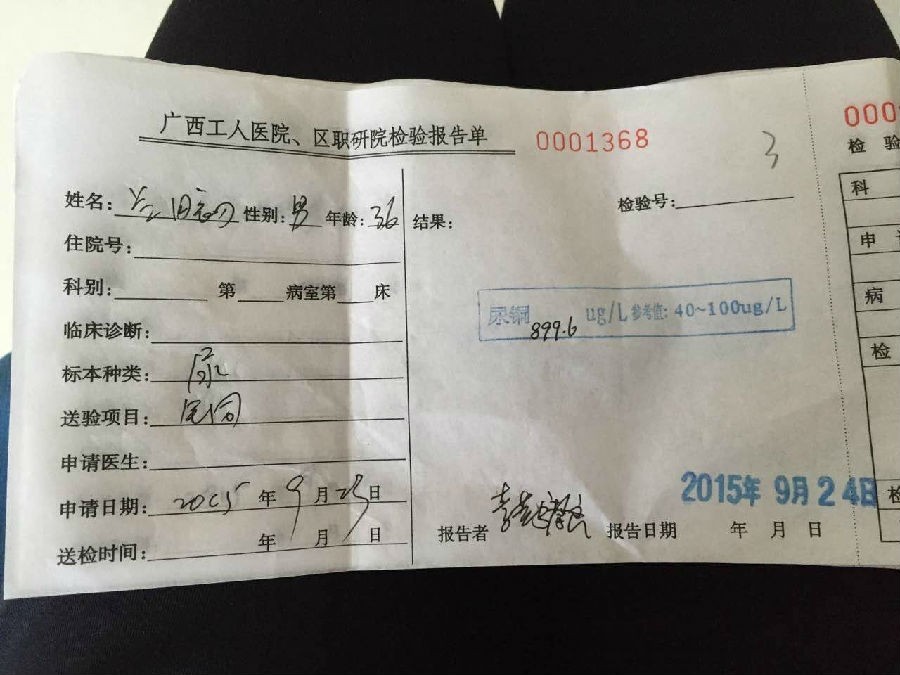 广西工人医院、区职研院检验报告单
0001368
3
姓名: 性别:男 年龄:36
住院号:
科别: 第 病室第 床
临床诊断:
标本种类:尿
送验项目:尿铜
申请医生:
申请日期:2015年9月23日
送检时间: 年 月 日
结果:
检验号:
尿铜 899.6 ug/L 参考值:40~100ug/L
2015年9月24日
报告者 报告日期 年 月 日
000
检 验
科
申
病
检
检